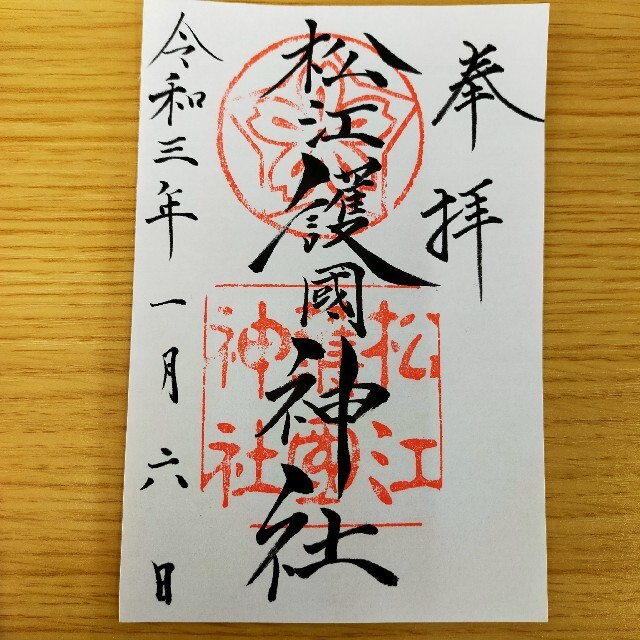 奉拝
松江護國神社
松江護國神社
令和三年一月六日